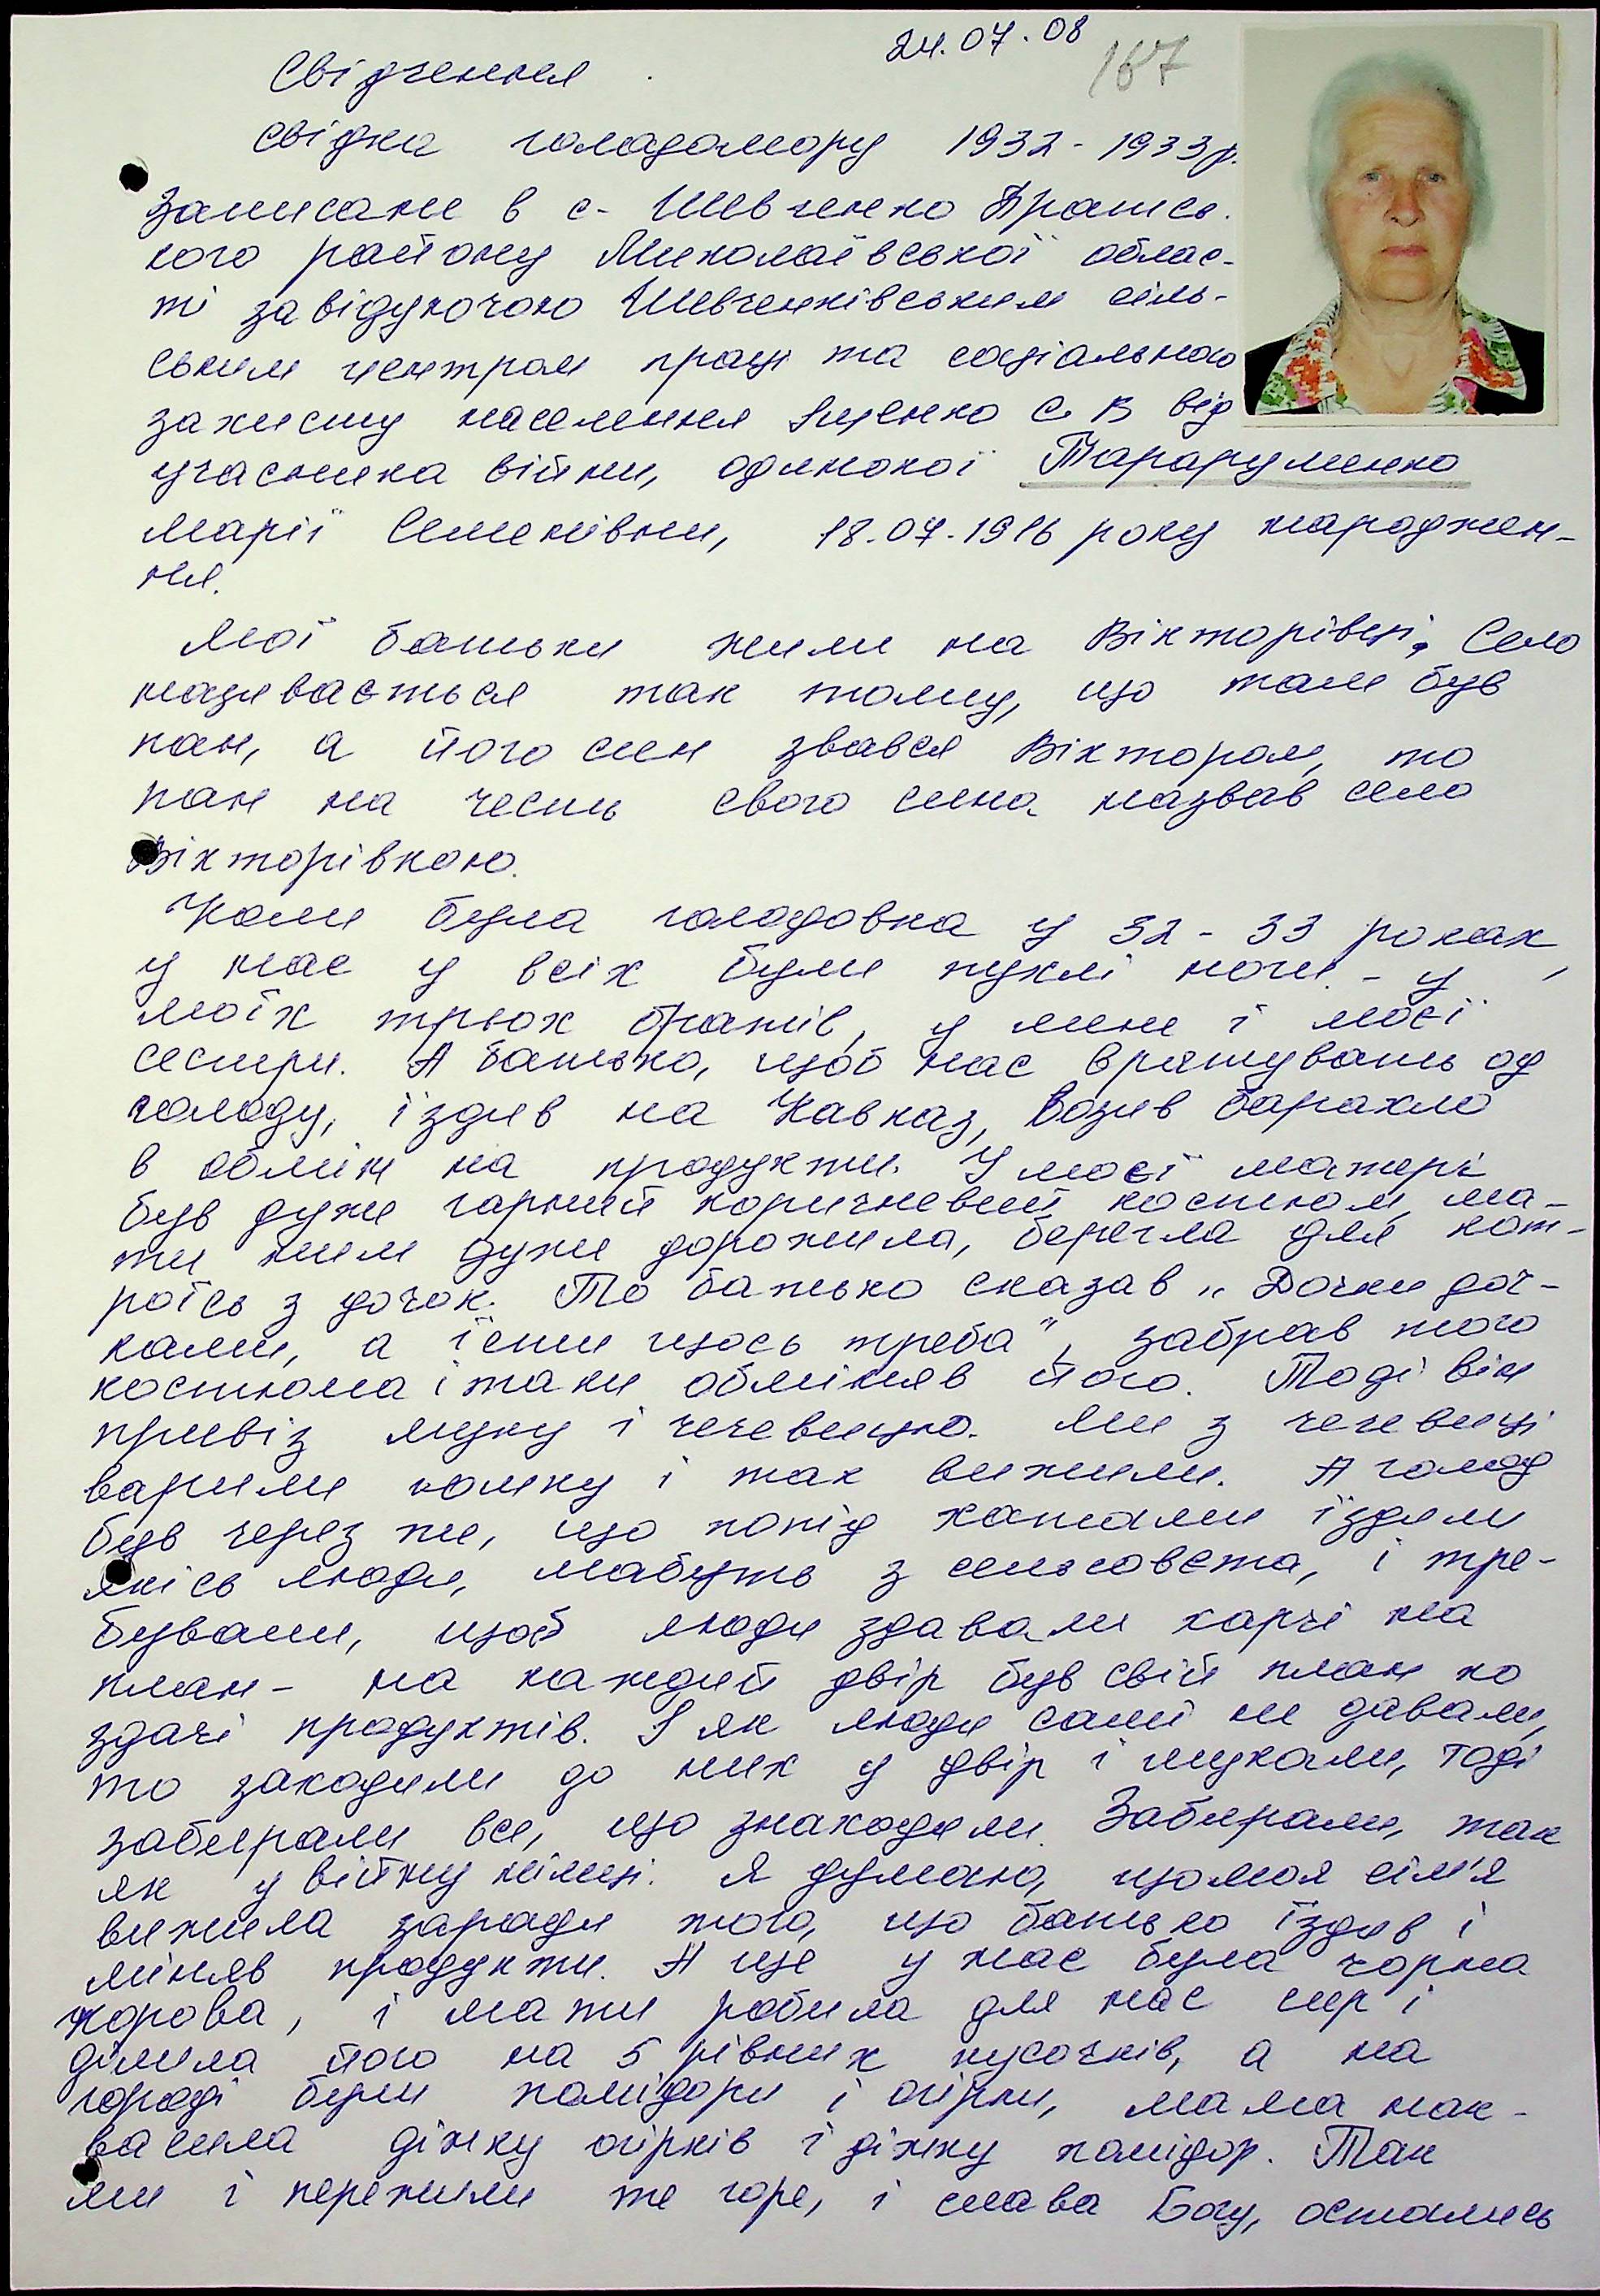 24.07.08
167
Свідчення
свідка голодомору 1932-1933р.
Записане в с. Шевченко Врадіїв
кого району Миколаївської облас-
ті завідуючою Шевченківським сіль-
ським центром праці та соціального
захисту населення Яценко С. В від
учасника війни, одинокої Тараруменко
Марії Семенівни, 18.07.1916 року народжен-
ня.
Мої батьки жили на Вікторівці. Село
називається так тому, що там був
пан, а його син звався Віктором, то
пан на честь свого сина назвав село
Вікторівкою.
Коли була голодовка у 32-33 роках,
у нас у всіх були пухлі ноги - у
моїх трьох братів, у мене і моєї
сестри. А батько, щоб нас врятувать од
голоду, їздив на Кавказ, возив барахло
в обмін на продукти. У моєї матері
був дуже гарний коричневий костюм, ма-
ти ним дуже дорожила, берегла для кот-
роїсь з дочок. То батько сказав „Дочки доч-
ками, а їсти щось треба", забрав того
костюма і таки обміняв його. Тоді він
привіз муку і чечевицю. Ми з чечевиці
варили юшку і так вижили. А голод
був через те, що попід хатами їздили
якісь люди, мабуть з сельсовєта, і тре-
бували, щоб люди здавали харчі на
план - на каждий двір був свій план по
здачі продуктів. І як люди самі не давали,
то заходили до них у двір і шукали, тоді
забирали все, що знаходили. Забирали, так
як у війну німці. Я думаю, що моя сім'я
вижила заради того, що батько їздив і
міняв продукти. А ще у нас була чорна
корова, і мати робила для нас сир і
ділила його на 5 рівних кусочків, а на
городі були помідори і огірки, мама нак-
васила діжку огірків і діжку помідор. Так
ми і пережили те горе, і слава Богу, остались